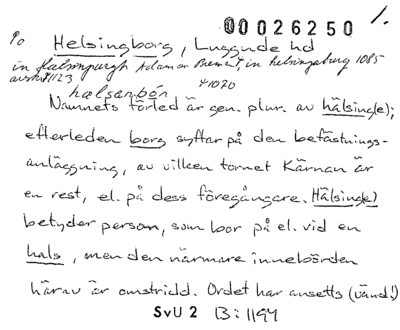 00026250 1.
Po Helsingborg, Luggude hd
in Halsinpurgh Adam av Bremen, in helsingaburg 1085
avskr 1123 †1020
halsanbón
Namnets förled är gen. plur. av hälsing(e);
efterleden borg syftar på den befästnings-
anläggning, av vilken tornet Kärnan är
en rest, el. på dess föregångare. Hälsing(e)
betyder person, som bor på el. vid en
hals, men den närmare innebörden
härav är omstridd. Ordet har ansetts (vänd!)
SvU 2 B:1194